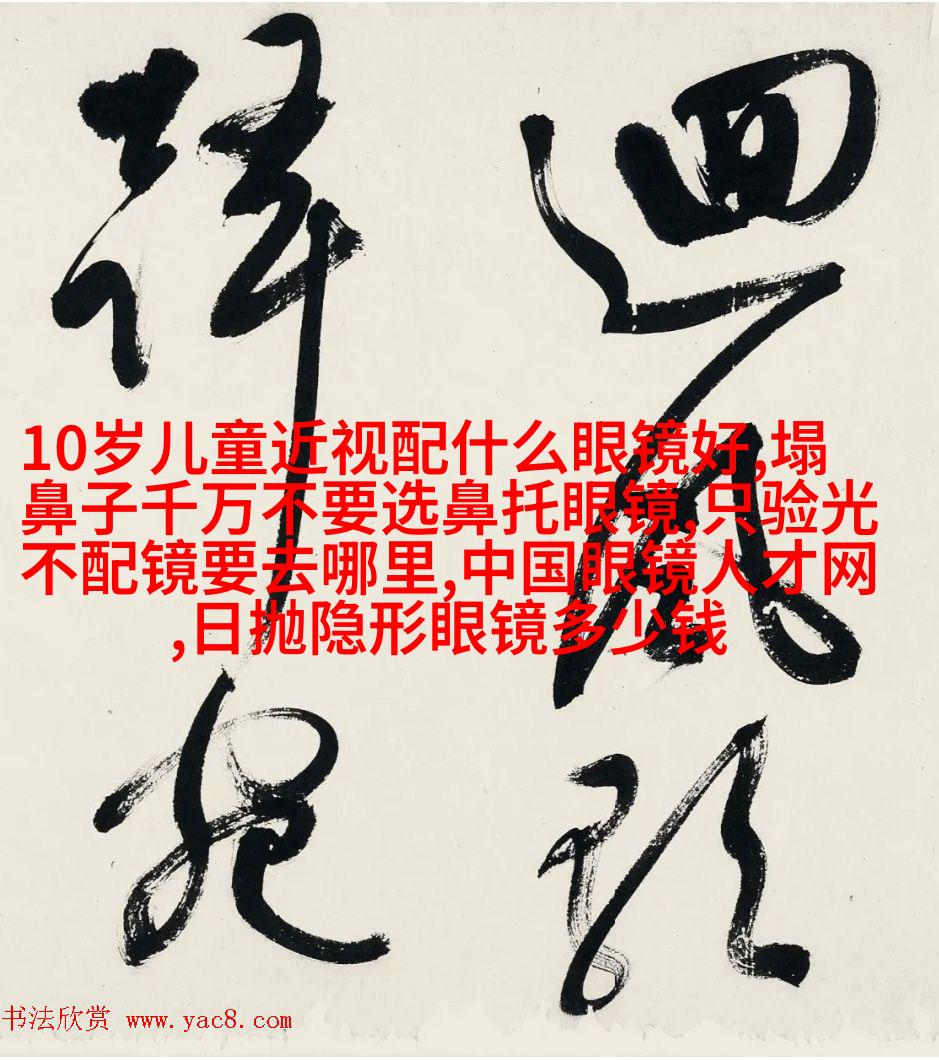 迴風
10岁儿童近视配什么眼镜好,塌
鼻子千万不要选鼻托眼镜,只验光
不配镜要去哪里,中国眼镜人才网
,日抛隐形眼镜多少钱
书法欣赏 www.yac8.com